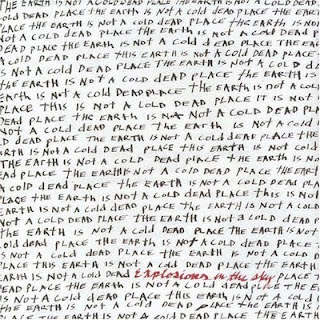 THE EARTH IS NOT A COLD DEAD PLACE THE EARTH IS NOT A COLD DEAD
PLACE THE EARTH IS NOT A COLD DEAD PLACE THE EARTH IS NOT
NOT A COLD DEAD PLACE THE EARTH IS NOT A COLD DEAD
DEAD PLACE THE EARTH IS NOT A COLD DEAD PLACE THE EAR
A COLD DEAD PLACE THIS EARTH IS NOT A COLD DEAD PLACE
IS NOT A COLD DEAD PLACE THE EARTH IS NOT A COLD DEAD
THE EARTH IS NOT A COLD DEAD PLACE THE EARTH IS NOT
EARTH IS NOT A COLD DEAD PLACE THE EARTH IS NOT A COLD
PLACE THIS IS NOT A COLD DEAD PLACE IT IS NOT A
DEAD PLACE THE EARTH IS NOT A COLD DEAD PLACE THE
NOT A COLD DEAD PLACE THE EARTH IS NOT A COLD DEAD
D DEAD PLACE THE EARTH IS NOT A COLD DEAD PLACE THE
RTH IS NOT A COLD DEAD PLACE THIS EARTH IS NOT A COLD
THE EARTH IS NOT A COLD DEAD PLACE THE EARTH IS NOT
EAD PLACE THE EARTH IS NOT A COLD DEAD PLACE THE EART
A COLD DEAD PLACE THE EARTH IS NOT A COLD DEAD PLA
IS NOT A COLD DEAD PLACE THE EARTH IS NOT A COLD DEAD
EARTH IS NOT A COLD DEAD PLACE THE EARTH IS NOT A COL
NOT A COLD DEAD PLACE THE EARTH IS NOT A COLD DEAD
THE EARTH IS NOT A COLD DEAD PLACE THE EARTH IS NOT
COLD DEAD PLACE THE EARTH IS NOT A COLD DEAD PLACE
PLACE THIS EARTH IS NOT A COLD DEAD PLACE THE EARTH
EARTH IS NOT A COLD DEAD Explosions in the Sky PLACE T
DEAD PLACE THE EARTH IS NOT A COLD DEAD PLACE THE E
IS NOT A COLD DEAD PLACE THIS EARTH IS NOT A COLD D
THE EARTH IS NOT A COLD DEAD PLACE THE EARTH IS NOT A